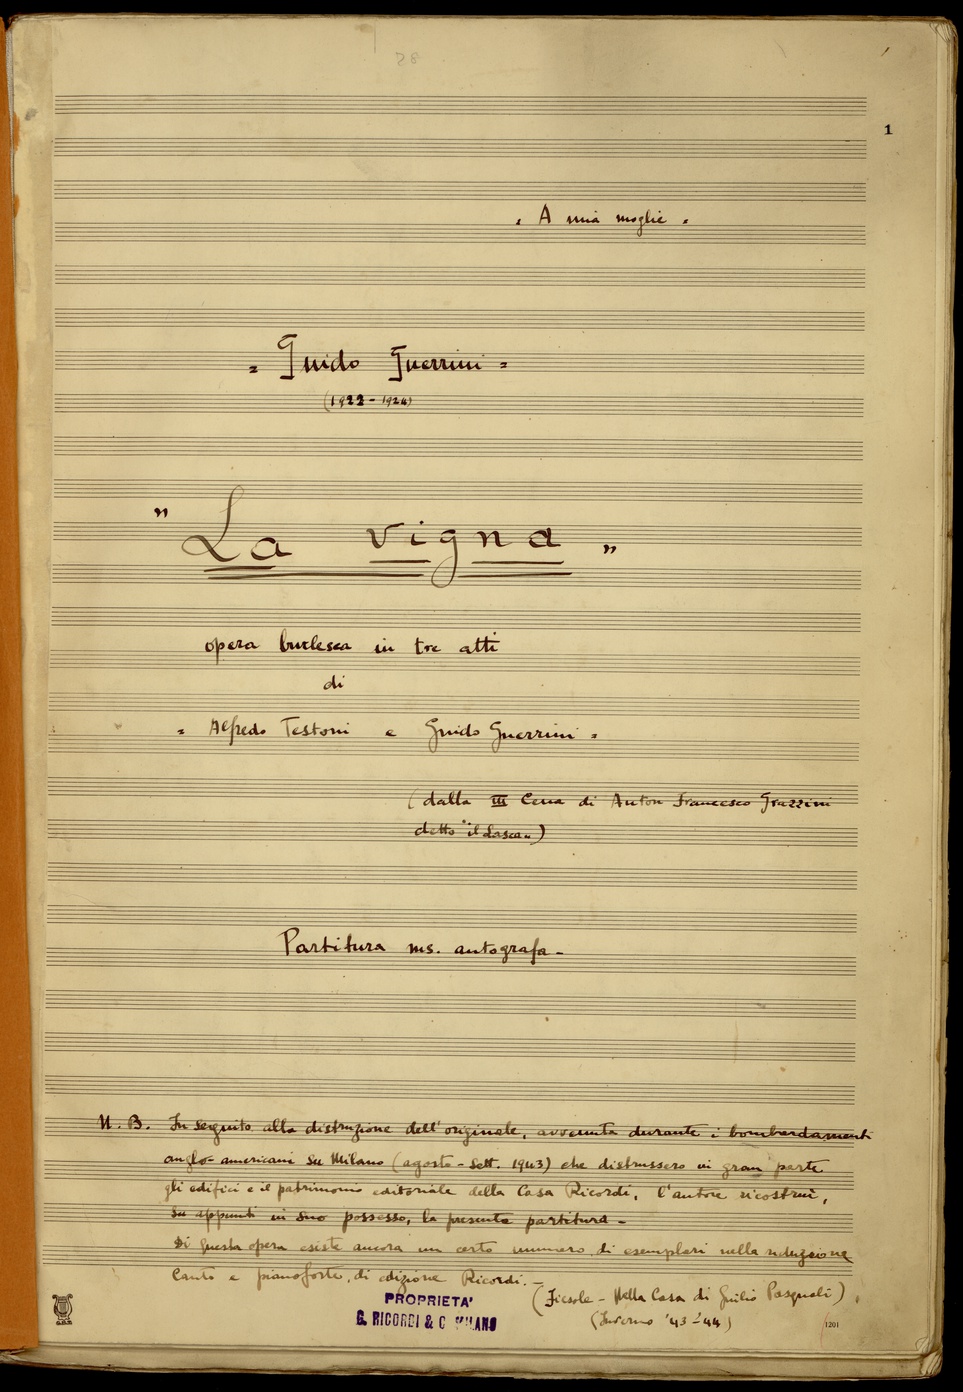 28
1
" A mia moglie "
= Guido Guerrini =
(1922 - 1924)
" La vigna "
opera burlesca in tre atti
di
= Alfredo Testoni e Guido Guerrini =
(dalla III Cena di Anton Francesco Grazzini
detto "il Lasca")
Partitura ms. autografa -
N. B. In seguito alla distruzione dell'originale, avvenuta durante i bombardamenti
anglo-americani su Milano (agosto - sett. 1943) che distrussero in gran parte
gli edifici e il patrimonio editoriale della Casa Ricordi, l'autore ricostruì,
su appunti in suo possesso, la presente partitura -
Di questa opera esiste ancora un certo numero di esemplari nella riduzione
Canto e pianoforte, di edizione Ricordi. -
(Fiesole - Nella Casa di Giulio Pasquali)
(Inverno '43-'44)
PROPRIETA'
G. RICORDI & C. MILANO
1201